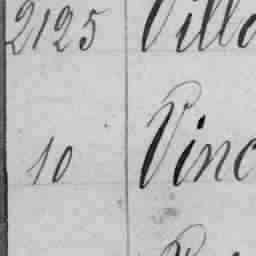 2125 Villa
10 Vinc